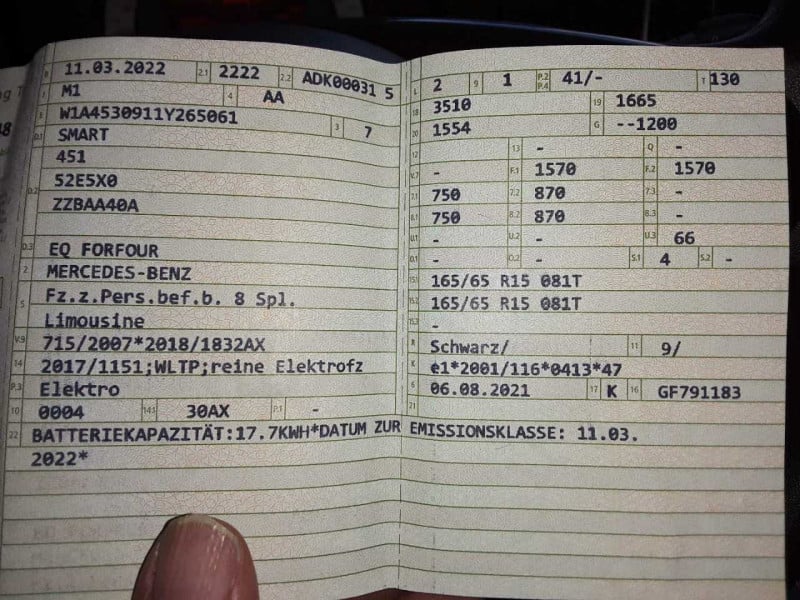 B 11.03.2022 2.1 2222 2.2 ADK00031 5
J M1 4 AA
E W1A4530911Y265061 3 7
D.1 SMART
D.2 451
52E5X0
ZZBAA40A
D.3 EQ FORFOUR
2 MERCEDES-BENZ
5 Fz.z.Pers.bef.b. 8 Spl.
Limousine
V.9 715/2007*2018/1832AX
14 2017/1151;WLTP;reine Elektrofz
P.3 Elektro
10 0004 14.1 30AX P.1 -
22 BATTERIEKAPAZITÄT:17.7KWH*DATUM ZUR EMISSIONSKLASSE: 11.03.
2022*
L 2 9 1 P.2 P.4 41/- T 130
18 3510 19 1665
20 1554 G --1200
12 - 13 - Q -
V.7 - F.1 1570 F.2 1570
7.1 750 7.2 870 7.3 -
8.1 750 8.2 870 8.3 -
U.1 - U.2 - U.3 66
O.1 - O.2 - S.1 4 S.2 -
15.1 165/65 R15 081T
15.2 165/65 R15 081T
15.3 -
R Schwarz/ 11 9/
K e1*2001/116*0413*47
6 06.08.2021 17 K 16 GF791183
21